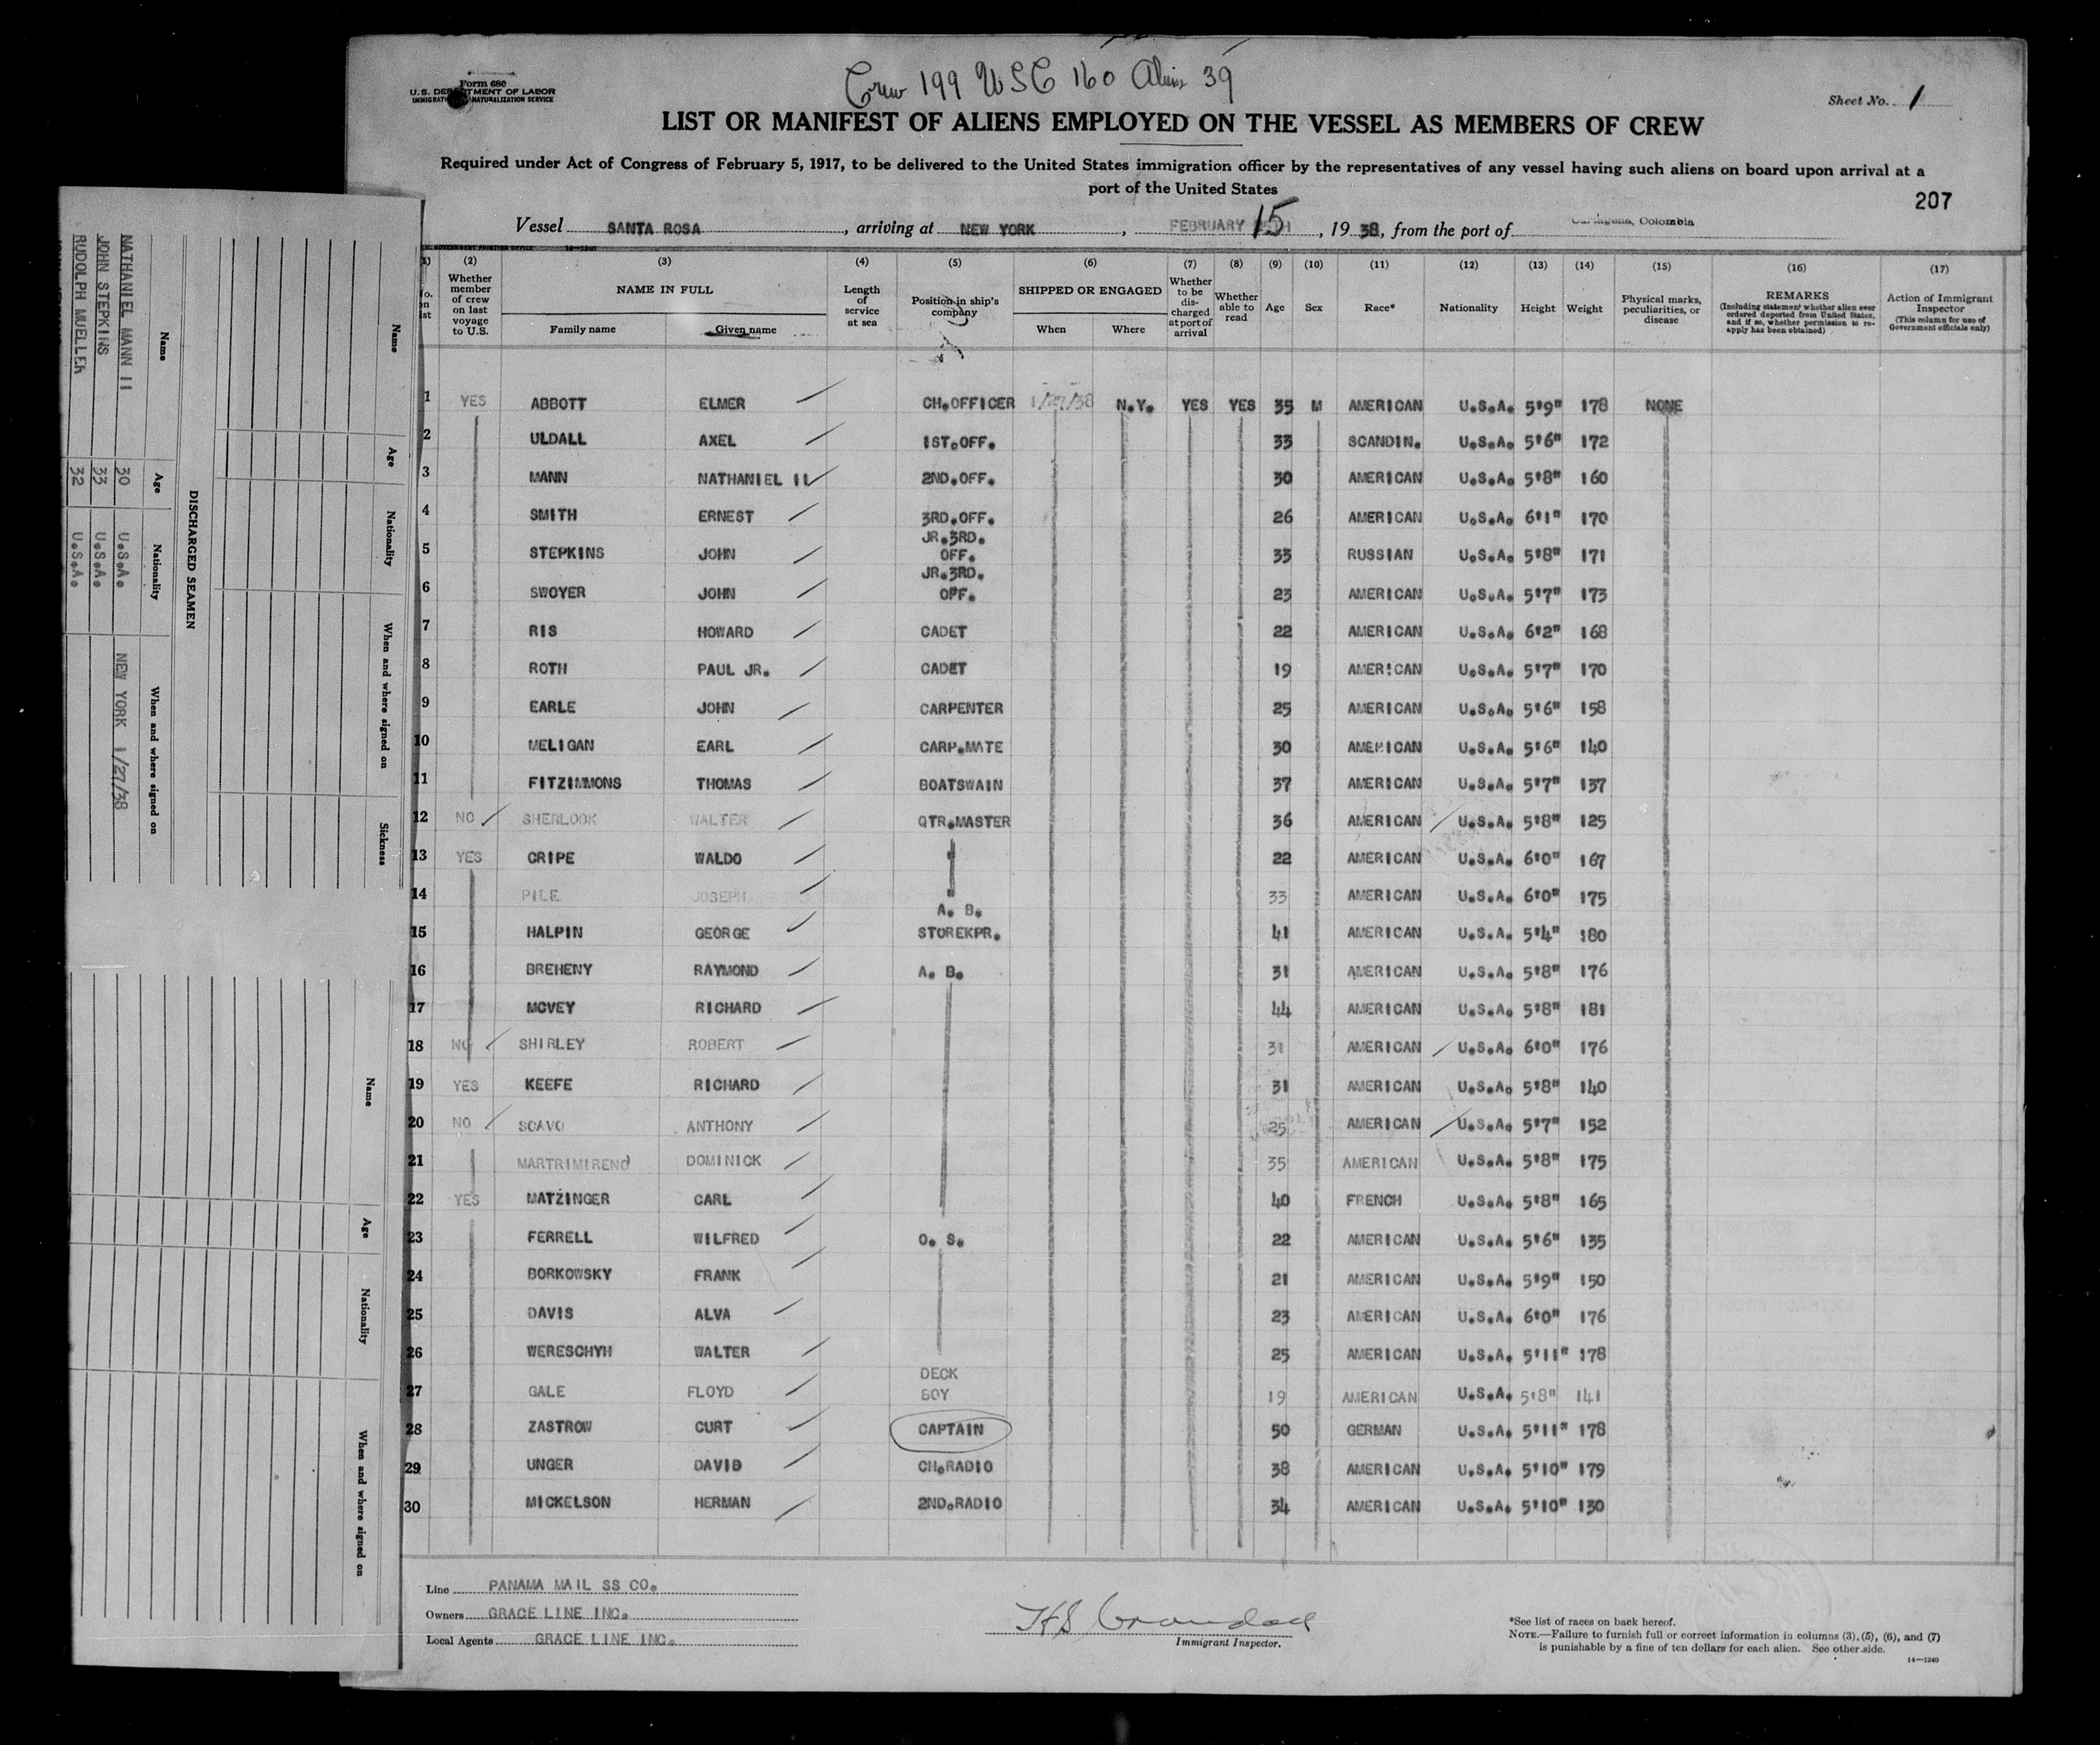 Crew 199 USC 160 Aliens 39
Form 680
U.S. DEPARTMENT OF LABOR
IMMIGRATION NATURALIZATION SERVICE
Sheet No. 1
LIST OR MANIFEST OF ALIENS EMPLOYED ON THE VESSEL AS MEMBERS OF CREW
Required under Act of Congress of February 5, 1917, to be delivered to the United States immigration officer by the representatives of any vessel having such aliens on board upon arrival at a
port of the United States
207
Vessel SANTA ROSA, arriving at NEW YORK, FEBRUARY 15, 1938, from the port of Cartagena, Colombia
GOVERNMENT PRINTING OFFICE 14—1240
(1) (2) (3) (4) (5) (6) (7) (8) (9) (10) (11) (12) (13) (14) (15) (16) (17)
No. on list
Whether member of crew on last voyage to U.S.
NAME IN FULL
Family name Given name
Length of service at sea
Position in ship's company
SHIPPED OR ENGAGED
When Where
Whether to be discharged at port of arrival
Whether able to read
Age
Sex
Race*
Nationality
Height
Weight
Physical marks, peculiarities, or disease
REMARKS
(Including statement whether alien ever ordered deported from United States, and if so, whether permission to reapply has been obtained)
Action of Immigrant Inspector
(This column for use of Government officials only)
1 YES ABBOTT ELMER CH.OFFICER 1/27/38 N.Y. YES YES 35 M AMERICAN U.S.A. 5'9" 178 NONE
2 ULDALL AXEL 1ST.OFF. 33 SCANDIN. U.S.A. 5'6" 172
3 MANN NATHANIEL II 2ND.OFF. 30 AMERICAN U.S.A. 5'8" 160
4 SMITH ERNEST 3RD.OFF. 26 AMERICAN U.S.A. 6'1" 170
5 STEPKINS JOHN JR.3RD. OFF. 33 RUSSIAN U.S.A. 5'8" 171
6 SWOYER JOHN JR.3RD. OFF. 23 AMERICAN U.S.A. 5'7" 173
7 RIS HOWARD CADET 22 AMERICAN U.S.A. 6'2" 168
8 ROTH PAUL JR. CADET 19 AMERICAN U.S.A. 5'7" 170
9 EARLE JOHN CARPENTER 25 AMERICAN U.S.A. 5'6" 158
10 MELIGAN EARL CARP.MATE 30 AMERICAN U.S.A. 5'6" 140
11 FITZIMMONS THOMAS BOATSWAIN 37 AMERICAN U.S.A. 5'7" 137
12 NO SHERLOOK WALTER QTR.MASTER 36 AMERICAN U.S.A. 5'8" 125
13 YES CRIPE WALDO " 22 AMERICAN U.S.A. 6'0" 167
14 PILE JOSEPH " 33 AMERICAN U.S.A. 6'0" 175
15 HALPIN GEORGE A. B. STOREKPR. 41 AMERICAN U.S.A. 5'4" 180
16 BREHENY RAYMOND A. B. 31 AMERICAN U.S.A. 5'8" 176
17 MCVEY RICHARD 44 AMERICAN U.S.A. 5'8" 181
18 NO SHIRLEY ROBERT 31 AMERICAN U.S.A. 6'0" 176
19 YES KEEFE RICHARD 31 AMERICAN U.S.A. 5'8" 140
20 NO SCAVO ANTHONY 25 AMERICAN U.S.A. 5'7" 152
21 MARTRIMIRENO DOMINICK 35 AMERICAN U.S.A. 5'8" 175
22 YES MATZINGER CARL 40 FRENCH U.S.A. 5'8" 165
23 FERRELL WILFRED O. S. 22 AMERICAN U.S.A. 5'6" 135
24 BORKOWSKY FRANK 21 AMERICAN U.S.A. 5'9" 150
25 DAVIS ALVA 23 AMERICAN U.S.A. 6'0" 176
26 WERESCHYH WALTER 25 AMERICAN U.S.A. 5'11" 178
27 GALE FLOYD DECK BOY 19 AMERICAN U.S.A. 5'8" 141
28 ZASTROW CURT CAPTAIN 50 GERMAN U.S.A. 5'11" 178
29 UNGER DAVID CH.RADIO 38 AMERICAN U.S.A. 5'10" 179
30 MICKELSON HERMAN 2ND.RADIO 34 AMERICAN U.S.A. 5'10" 130
Line PANAMA MAIL SS CO.
Owners GRACE LINE INC.
Local Agents GRACE LINE INC.
HS Crandall
Immigrant Inspector.
*See list of races on back hereof.
NOTE.—Failure to furnish full or correct information in columns (3), (5), (6), and (7)
is punishable by a fine of ten dollars for each alien. See other side.
14—1240
Name Age Nationality When and where signed on Sickness
DISCHARGED SEAMEN
Name Age Nationality When and where signed on
NATHANIEL MANN II 30 U.S.A. NEW YORK 1/27/38
JOHN STEPKINS 33 U.S.A.
RUDOLPH MUELLER 32 U.S.A.
Name Age Nationality When and where signed on